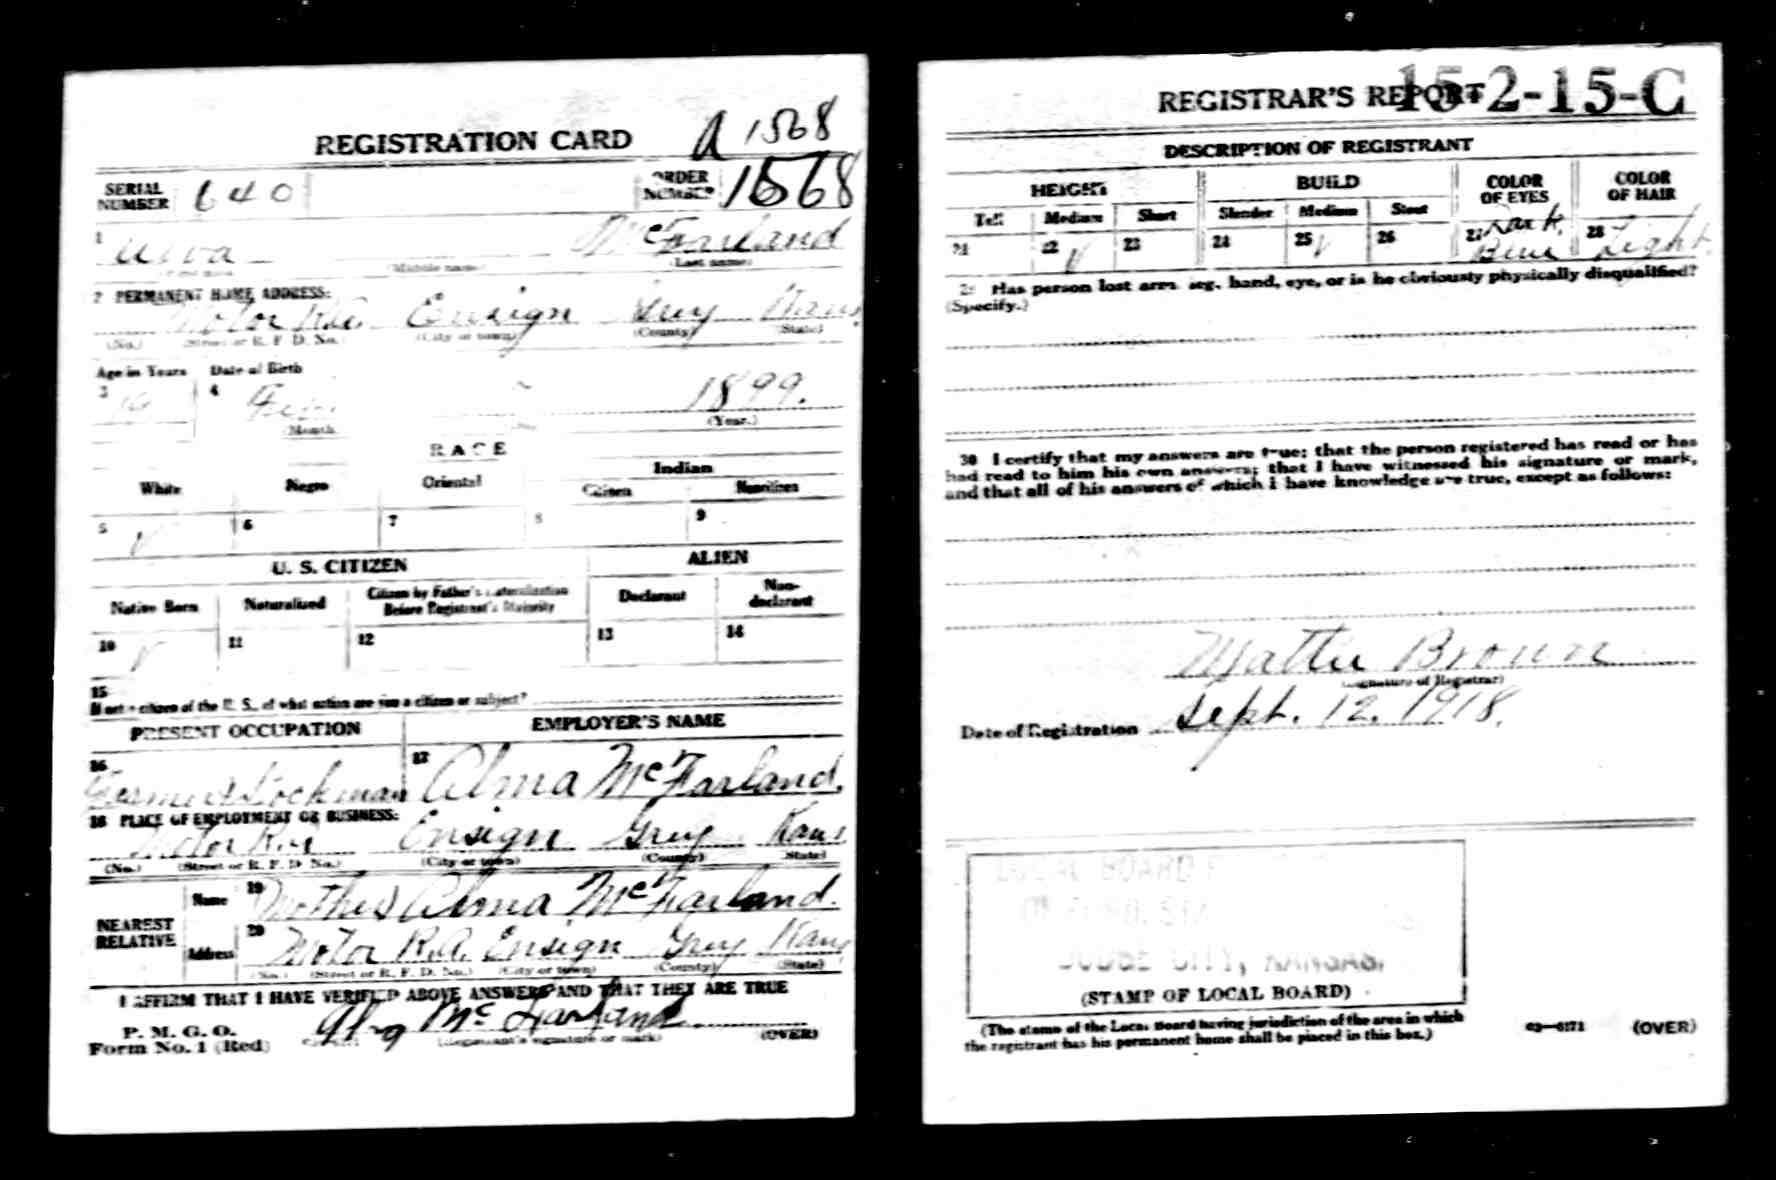 REGISTRATION CARD
A 1568
SERIAL NUMBER 640
ORDER NUMBER 1568
1 McFarland
(Middle name) (Last name)
2 PERMANENT HOME ADDRESS:
Motor Ensign Gray Kans
(No.) (Street or R. F. D. No.) (City or town) (County) (State)
Age in Years Date of Birth
3 19 4 1899.
(Month) (Year.)
RACE
White Negro Oriental Indian
Citizen Noncitizen
5 √ 6 7 8 9
U. S. CITIZEN ALIEN
Native Born Naturalized Citizen by Father's Naturalization Before Registrant's Majority Declarant Non-declarant
10 √ 11 12 13 14
15
If not a citizen of the U. S., of what nation are you a citizen or subject?
PRESENT OCCUPATION EMPLOYER'S NAME
16 Stockman 17 Alma McFarland.
18 PLACE OF EMPLOYMENT OR BUSINESS:
Motor Ensign Gray Kans
(No.) (Street or R. F. D. No.) (City or town) (County) (State)
NEAREST RELATIVE
Name 19 Mother Alma McFarland.
Address 20 Motor R.A. Ensign Gray Kans
(No.) (Street or R. F. D. No.) (City or town) (County) (State)
I AFFIRM THAT I HAVE VERIFIED ABOVE ANSWERS AND THAT THEY ARE TRUE
P. M. G. O.
Form No. 1 (Red) McFarland
(Registrant's signature or mark) (OVER)
REGISTRAR'S REPORT 15-2-15-C
DESCRIPTION OF REGISTRANT
HEIGHT BUILD COLOR OF EYES COLOR OF HAIR
Tall Medium Short Slender Medium Stout
21 22 √ 23 24 25 √ 26 27 Dark Blue 28 Light
29 Has person lost arm, leg, hand, eye, or is he obviously physically disqualified?
(Specify.)
30 I certify that my answers are true; that the person registered has read or has
had read to him his own answers; that I have witnessed his signature or mark,
and that all of his answers of which I have knowledge are true, except as follows:
Mattie Brown
(Signature of Registrar)
Date of Registration Sept. 12. 1918.
LOCAL BOARD
DODGE CITY, KANSAS.
(STAMP OF LOCAL BOARD)
(The stamp of the Local Board having jurisdiction of the area in which
the registrant has his permanent home shall be placed in this box.)
03—6171 (OVER)